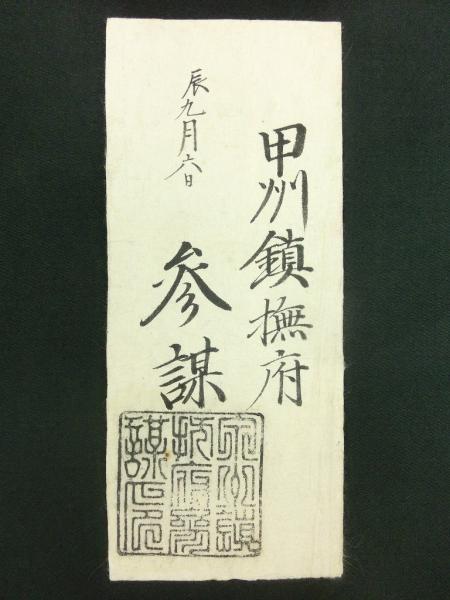 甲州鎮撫府
参謀
辰九月六日